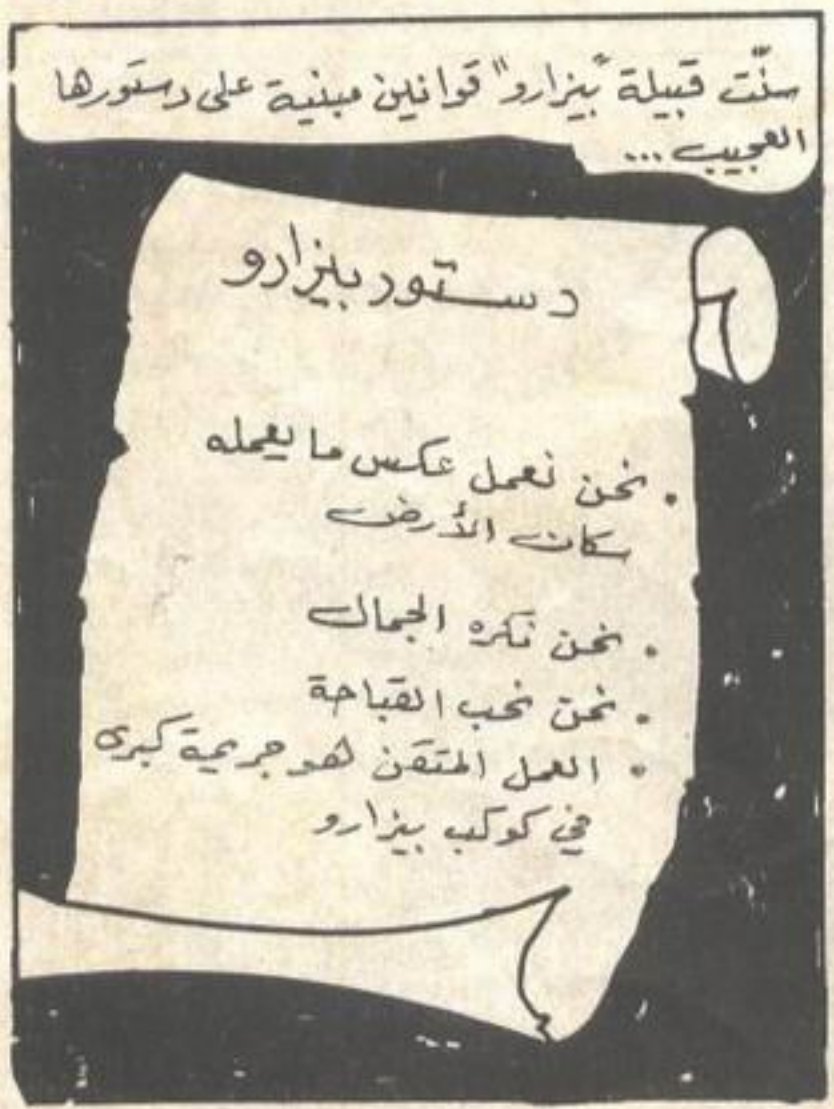 سنّت قبيلة "بيزارو" قوانين مبنية على دستورها
العجيب...
دستور بيزارو
• نحن نعمل عكس ما يعمله
سكان الأرض
• نحن نكره الجمال
• نحن نحب القباحة
• العمل المتقن هو جريمة كبرى
في كوكب بيزارو